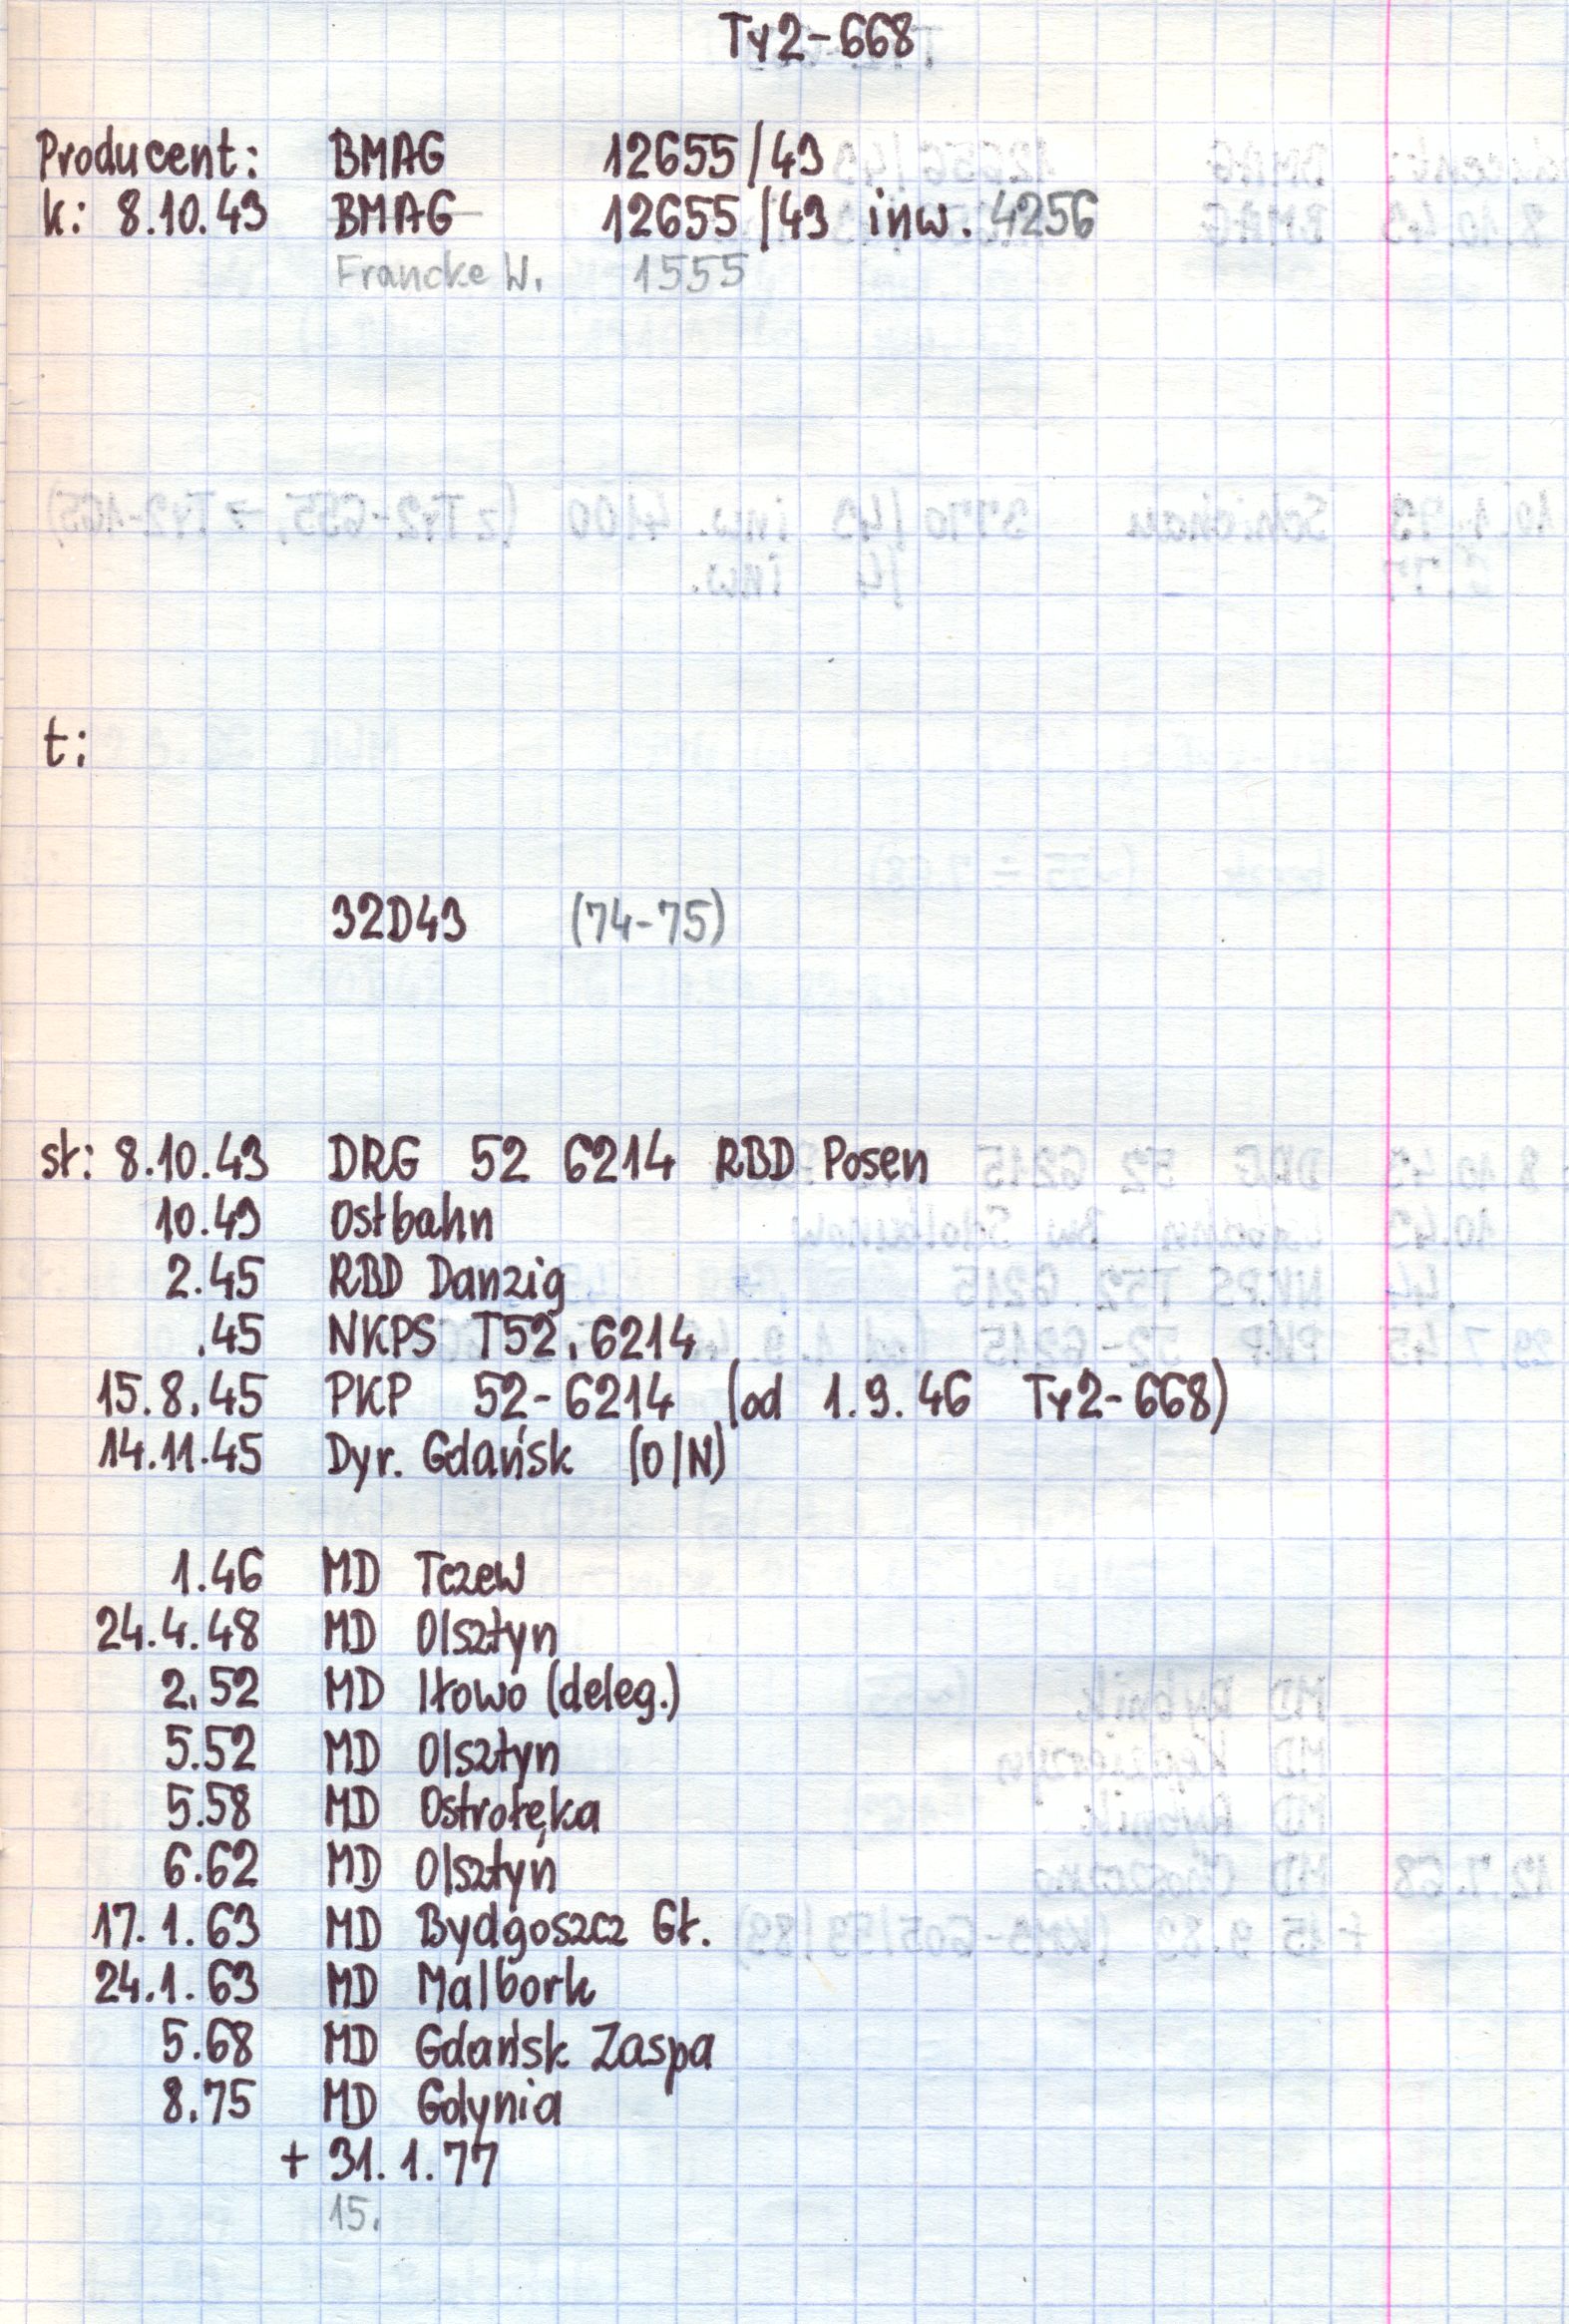 Ty2-668
Producent: BMAG 12655/43
k: 8.10.43 BMAG 12655/43 inw. 4256
Francke W. 1555
t:
32D43 (74-75)
st: 8.10.43 DRG 52 6214 RBD Posen
10.43 Ostbahn
2.45 RBD Danzig
.45 NKPS T52.6214
15.8.45 PKP 52-6214 (od 1.9.46 Ty2-668)
14.11.45 Dyr. Gdańsk (O/N)
1.46 MD Tczew
24.4.48 MD Olsztyn
2.52 MD Iłowo (deleg.)
5.52 MD Olsztyn
5.58 MD Ostrołęka
6.62 MD Olsztyn
17.1.63 MD Bydgoszcz Gł.
24.1.63 MD Malbork
5.68 MD Gdańsk Zaspa
8.75 MD Gdynia
+ 31.1.77
15.